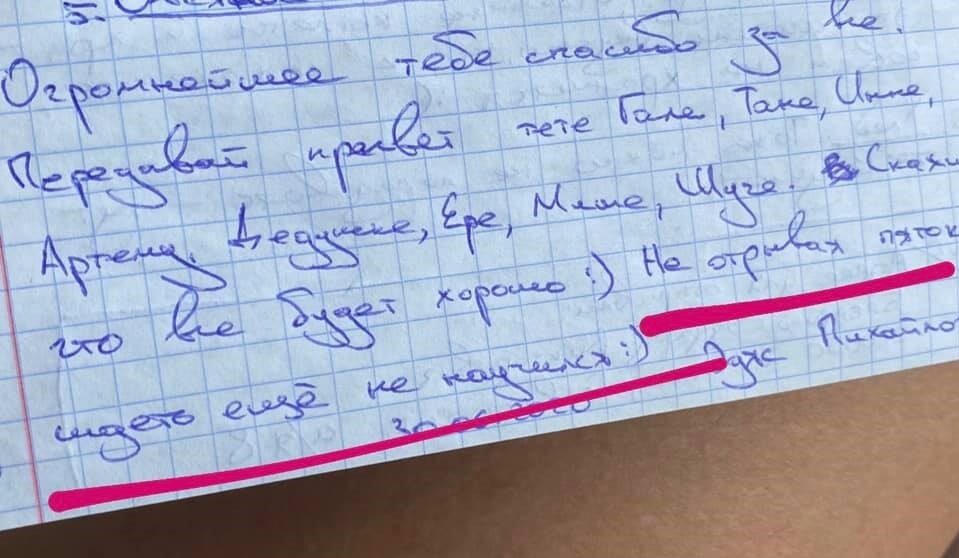 5.
Огромнейшее тебе спасибо за все.
Передавай привет тете Гале, Тане, Инне,
Артему, Дедушке, Ере, Мише, Шуге. Скажи
что все будет хорошо :) Не отрывая пяток
ещё не научился :)
30.06.2020